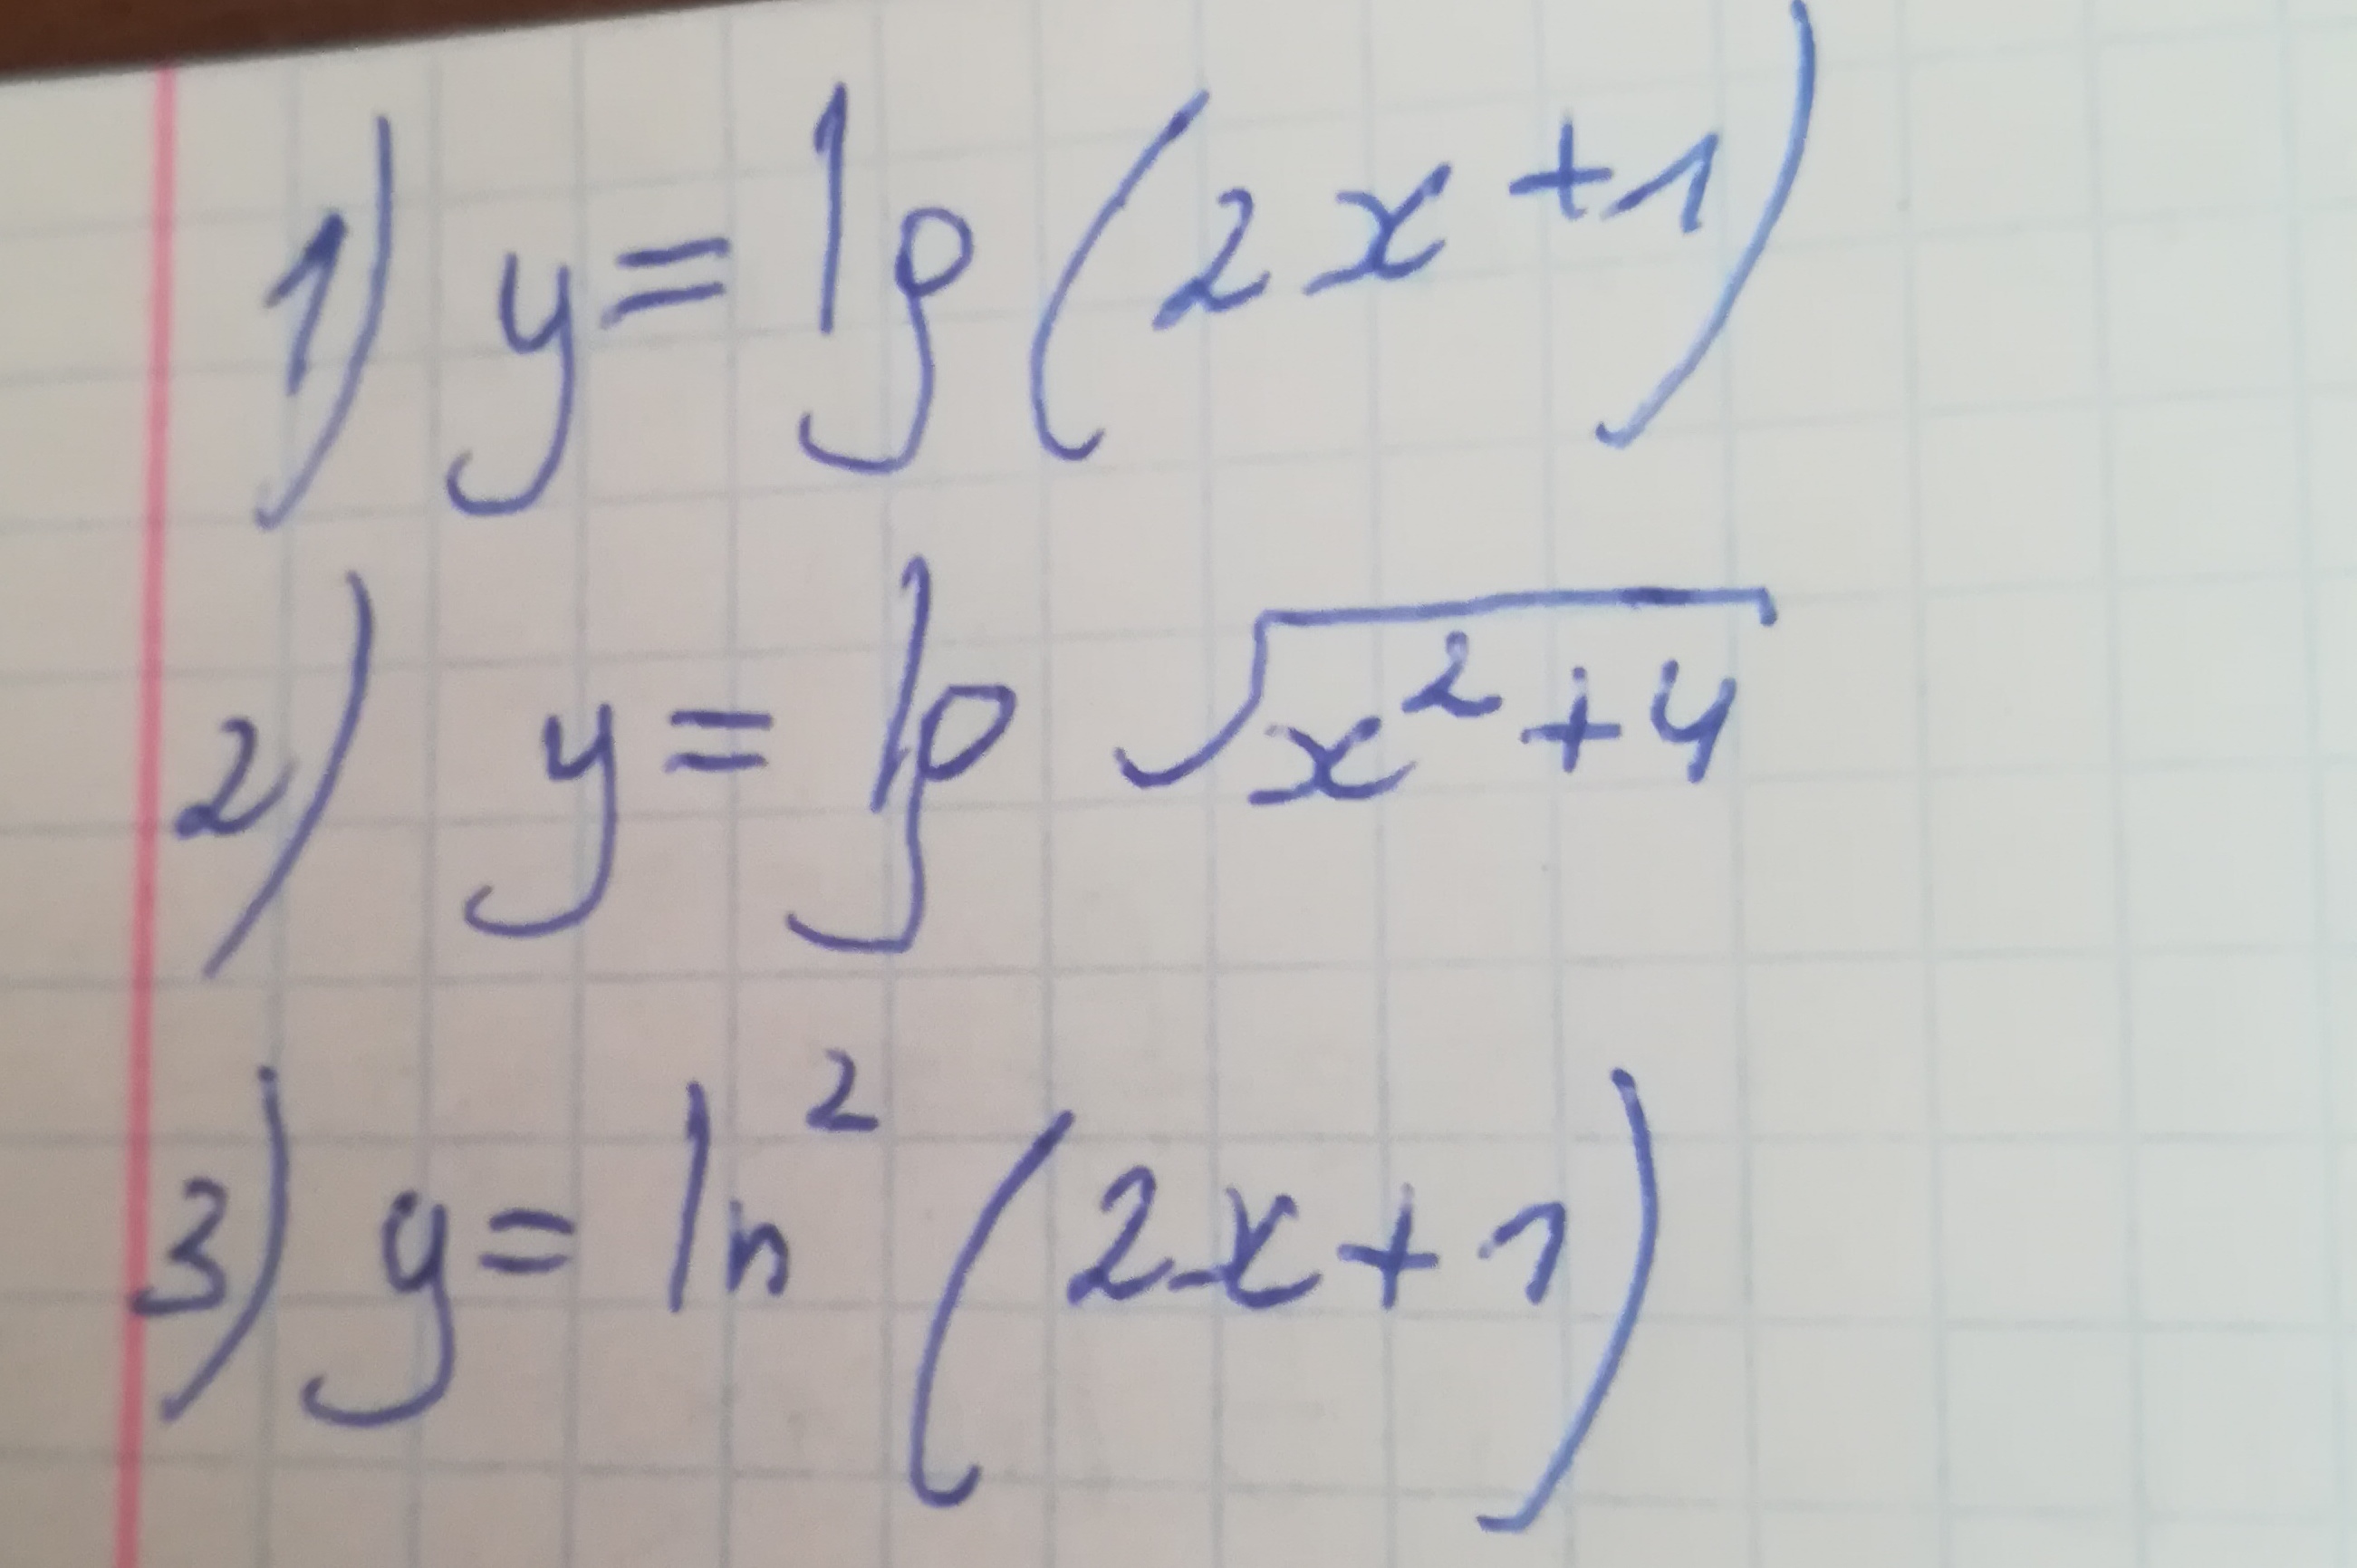 1) y = lg (2x + 1)
2) y = lg √(x² + 4)
3) y = ln² (2x + 1)